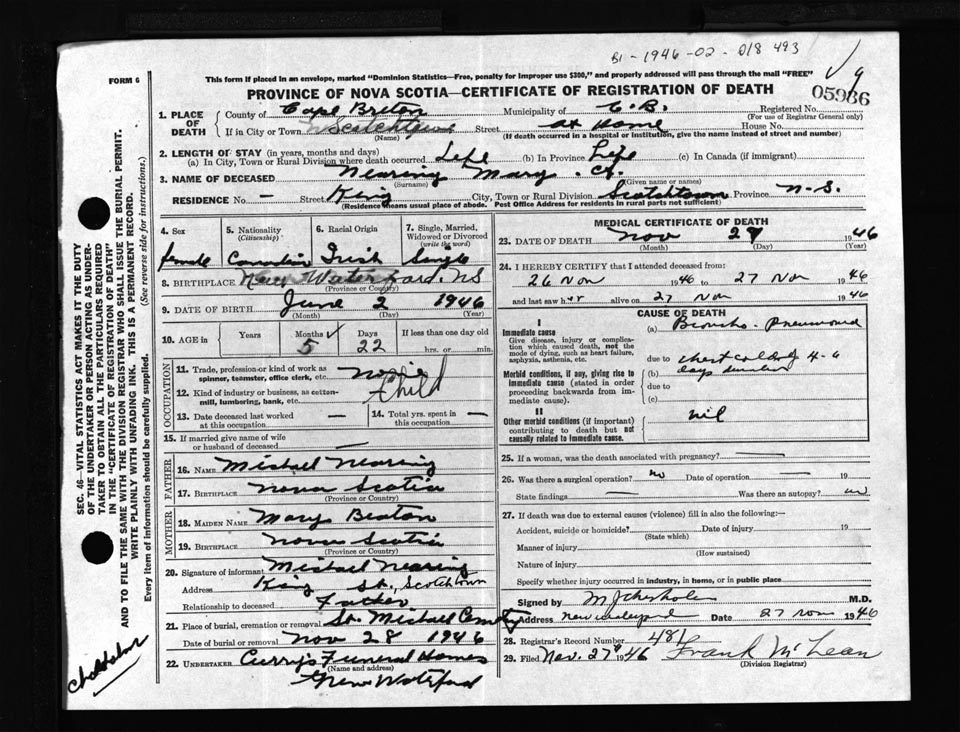 B1-1946-02-018493
9
FORM 6
This form if placed in an envelope, marked "Dominion Statistics—Free, penalty for improper use $300," and properly addressed will pass through the mail "FREE"
PROVINCE OF NOVA SCOTIA—CERTIFICATE OF REGISTRATION OF DEATH
05986
1. PLACE OF DEATH
County of Cape Breton Municipality of C.B. Registered No.
(For use of Registrar General only)
If in City or Town Street at Home House No.
(Name) (If death occurred in a hospital or institution, give the name instead of street and number)
2. LENGTH OF STAY (in years, months and days)
(a) In City, Town or Rural Division where death occurred Life (b) In Province Life (c) In Canada (if immigrant)
3. NAME OF DECEASED Nearing Mary
(Surname) (Given name or names)
RESIDENCE No. – Street King City, Town or Rural Division Scotchtown Province N.S.
(Residence means usual place of abode. Post Office Address for residents in rural parts not sufficient)
4. Sex
female
5. Nationality
(Citizenship)
Canadian
6. Racial Origin
Irish
7. Single, Married, Widowed or Divorced
(write the word)
Single
8. BIRTHPLACE New Waterford, NS
(Province or Country)
9. DATE OF BIRTH June 2 1946
(Month) (Day) (Year)
10. AGE in Years Months Days If less than one day old
5 22 hrs. or min.
OCCUPATION
11. Trade, profession or kind of work as
spinner, teamster, office clerk, etc. none
12. Kind of industry or business, as cotton-
mill, lumbering, bank, etc. Child
13. Date deceased last worked
at this occupation —
14. Total yrs. spent in
this occupation —
15. If married give name of wife
or husband of deceased —
FATHER
16. NAME Michael Nearing
17. BIRTHPLACE Nova Scotia
(Province or Country)
MOTHER
18. MAIDEN NAME Mary Beaton
19. BIRTHPLACE Nova Scotia
(Province or Country)
20. Signature of informant Michael Nearing
Address King St., Scotchtown
Relationship to deceased Father
21. Place of burial, cremation or removal St. Michael Cemetry
Date of burial or removal Nov 28 1946
22. UNDERTAKER Curry's Funeral Homes
(Name and address)
New Waterford
MEDICAL CERTIFICATE OF DEATH
23. DATE OF DEATH Nov 27 1946
(Month) (Day) (Year)
24. I HEREBY CERTIFY that I attended deceased from:
26 Nov 1946 to 27 Nov 1946
and last saw her alive on 27 Nov 1946
CAUSE OF DEATH
I
Immediate cause
Give disease, injury or complication which caused death, not the mode of dying, such as heart failure, asphyxia, asthenia, etc.
(a) Broncho-Pneumonia
due to chest cold 4-6
Morbid conditions, if any, giving rise to immediate cause (stated in order proceeding backwards from immediate cause).
(b) days duration
due to
(c)
II
Other morbid conditions (if important) contributing to death but not causally related to immediate cause.
nil
25. If a woman, was the death associated with pregnancy? —
26. Was there a surgical operation? no Date of operation — 19
State findings — Was there an autopsy? no
27. If death was due to external causes (violence) fill in also the following:—
Accident, suicide or homicide? Date of injury 19
(State which)
Manner of injury
(How sustained)
Nature of injury
Specify whether injury occurred in industry, in home, or in public place
Signed by M.D.
Address Date 27 Nov 1946
28. Registrar's Record Number 481
29. Filed Nov. 27th 1946 Frank McLean
(Division Registrar)
SEC. 46—VITAL STATISTICS ACT MAKES IT THE DUTY
OF THE UNDERTAKER OR PERSON ACTING AS UNDER-
TAKER TO OBTAIN ALL THE PARTICULARS REQUIRED
IN THE "CERTIFICATE OF REGISTRATION OF DEATH"
AND TO FILE THE SAME WITH THE DIVISION REGISTRAR WHO SHALL ISSUE THE BURIAL PERMIT.
WRITE PLAINLY WITH UNFADING INK. THIS IS A PERMANENT RECORD.
Every item of information should be carefully supplied. (See reverse side for instructions.)